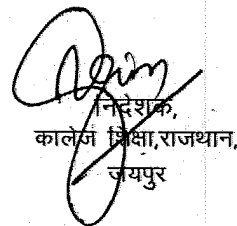 निदेशक,
कालेज शिक्षा,राजथान,
जयपुर